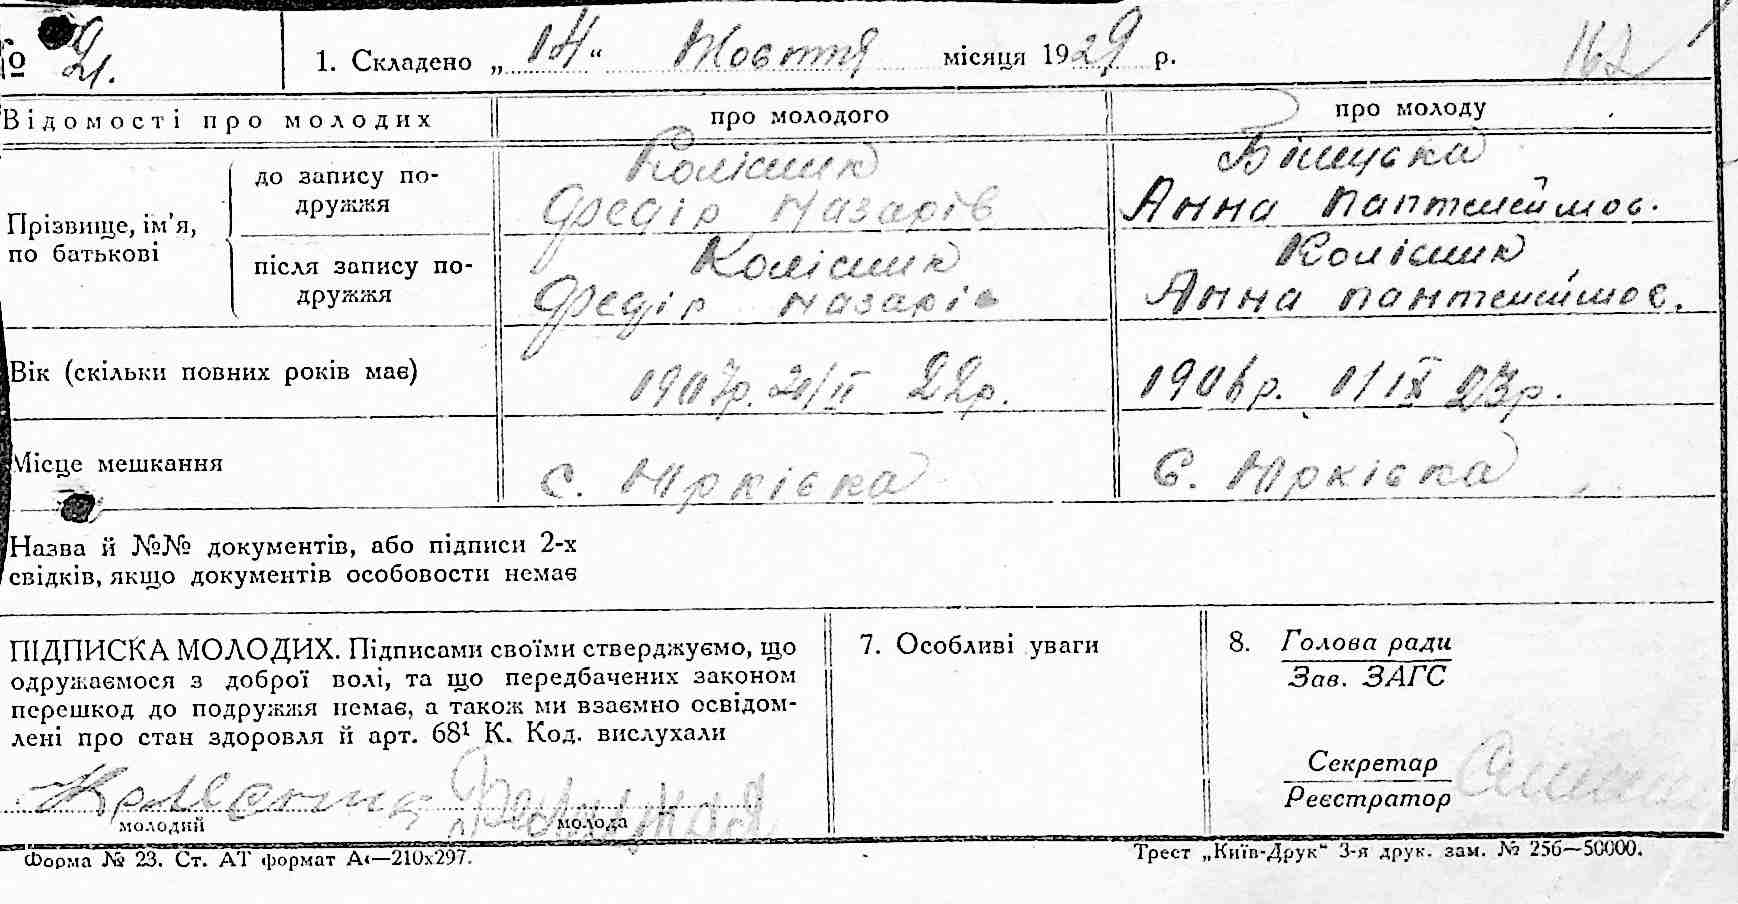 № 21.
1. Складено „14“ Жовтня місяця 1929 р.
162
Відомості про молодих
про молодого
про молоду
Прізвище, ім'я, по батькові
до запису подружжя
Колісник
Федір Назарів
Білецька
Анна Пантелеймов.
після запису подружжя
Колісник
Федір Назарів
Колісник
Анна Пантелеймов.
Вік (скільки повних років має)
1907р. 21/II 22р.
1906р. 1/IX 23р.
Місце мешкання
с. Юрківка
с. Юрківка
Назва й №№ документів, або підписи 2-х
свідків, якщо документів особовости немає
ПІДПИСКА МОЛОДИХ. Підписами своїми стверджуємо, що
одружаємося з доброї волі, та що передбачених законом
перешкод до подружжя немає, а також ми взаємно освідом-
лені про стан здоровля й арт. 68¹ К. Код. вислухали
молодий
молода
7. Особливі уваги
8. Голова ради
Зав. ЗАГС
Секретар
Реєстратор
Форма № 23. Ст. АТ формат А4—210x297.
Трест „Київ-Друк“ 3-я друк. зам. № 256—50000.